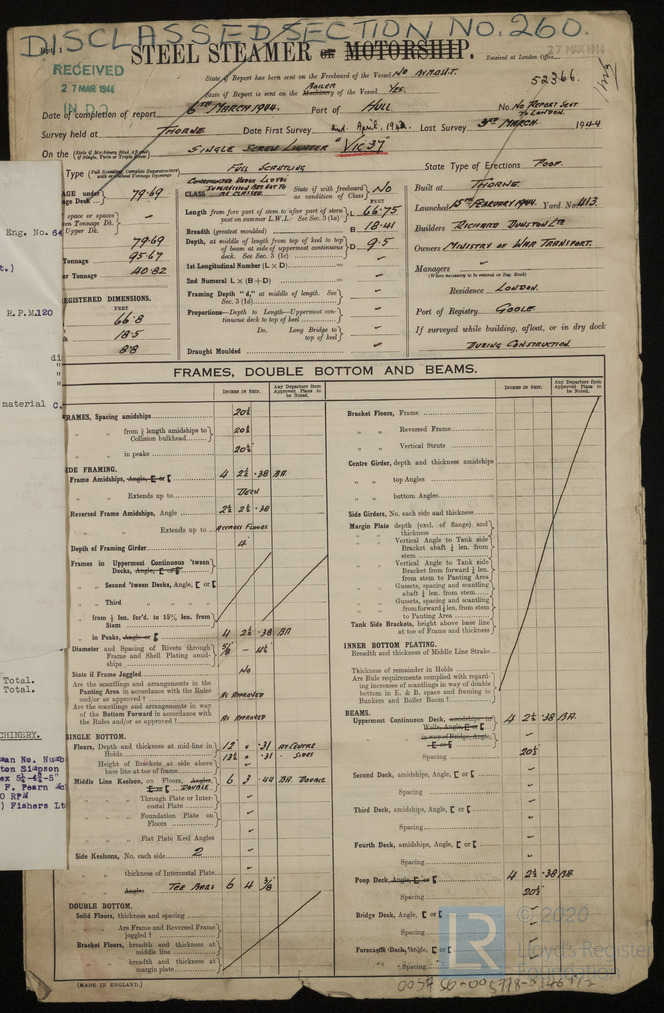 DISCLASSED/SECTION NO. 260.
Rpt. 1
STEEL STEAMER OR MOTORSHIP.
Received at London Office
27 MAR 1944
RECEIVED
27 MAR 1944
IN D.O.
State if Report has been sent on the Freeboard of the Vessel No
State if Report is sent on the Machinery of the Vessel Yes.
BOILER
52366.
Date of completion of report 6TH MARCH 1944. Port of HULL No. No REPORT SENT TO LONDON.
Survey held at THORNE Date First Survey 2nd. April, Last Survey 3RD MARCH 1944
On the (State if Machinery fitted Aft and if Single, Twin or Triple Screw) SINGLE SCREW LIGHTER "VIC 37"
FULL SCANTLING
State Type of Erections POOP.
CLASS
State if with freeboard as condition of Class No
Length from fore part of stem to after part of stern post on summer L.W.L. See Sec. 3 (1a) L 66.75
Breadth (greatest moulded) B 18.41
Depth, at middle of length from top of keel to top of beam at side of uppermost continuous deck. See Sec. 3 (1c) D 9.5
1st Longitudinal Number (L × D)
2nd Numeral L × (B + D)
Framing Depth "d," at middle of length. See Sec. 3 (1d)
Proportions—Depth to Length—Uppermost continuous deck to top of keel
Do. Long Bridge to top of keel
Draught Moulded
79.69
79.69
95.67
Tonnage
er Tonnage 40.82
REGISTERED DIMENSIONS.
FEET
66.8
18.5
8.8
Built at THORNE.
Launched 15TH FEBRUARY 1944. Yard No. 413.
Builders RICHARD DUNSTON LTD
Owners MINISTRY OF WAR TRANSPORT.
Managers
(Where necessary to be entered in Reg. Book)
Residence LONDON.
Port of Registry GOOLE.
If surveyed while building, afloat, or in dry dock
DURING CONSTRUCTION.
Eng. No. 64
R.P.M. 120
material C.
Total.
Total.
CHINERY.
ton Simpson
F. Pearn
0 RPM
) Fishers Lt
FRAMES, DOUBLE BOTTOM AND BEAMS.
INCHES IN SHIP.
Any Departure from Approved Plans to be Noted.
INCHES IN SHIP.
Any Departure from Approved Plans to be Noted.
FRAMES, Spacing amidships 20½
" " from ⅗ length amidships to Collision bulkhead 20½
" " in peaks 20½
SIDE FRAMING.
Frame Amidships, Angle, E or [ 4 2½ .38 BA.
" " Extends up to DECK
Reversed Frame Amidships, Angle 2½ 2½ .38
" " Extends up to ACCROSS FLOORS
Depth of Framing Girder 4
Frames in Uppermost Continuous 'tween Decks, Angle, E or [
" Second 'tween Decks, Angle, E or [
" Third " " " "
" from ⅕ len. for'd. to 15% len. from Stem
" in Peaks, Angle or [ 4 2½ .38 BA
Diameter and Spacing of Rivets through Frame and Shell Plating amidships ⅝ — 4½
State if Frame Joggled No
Are the scantlings and arrangements in the Panting Area in accordance with the Rules and/or as approved? AS APPROVED
Are the scantlings and arrangements in way of the Bottom Forward in accordance with the Rules and/or as approved? AS APPROVED
SINGLE BOTTOM.
Floors, Depth and thickness at mid-line in Holds 12 × .31 AT CENTRE
13½ × .31 . SIDES
" Height of Brackets at side above base line at toe of frame
Middle Line Keelson, on Floors, Angles, E or [ DOUBLE 6 3 .44 BA. DOUBLE
" " Through Plate or Intercostal Plate
" " Foundation Plate on Floors
" " Flat Plate Keel Angles
Side Keelsons, No. each side 2
" " thickness of Intercostal Plate
" " Angles TEE BARS 6 4 ⅜
DOUBLE BOTTOM.
Solid Floors, thickness and spacing
" " Are Frame and Reversed Frame joggled?
Bracket Floors, breadth and thickness at middle line
" " breadth and thickness at margin plate
(MADE IN ENGLAND.)
Bracket Floors, Frame
" " Reversed Frame
" " Vertical Struts
Centre Girder, depth and thickness amidships
" " top Angles
" " bottom Angles
Side Girders, No. each side and thickness
Margin Plate depth (excl. of flange) and thickness
" " Vertical Angle to Tank side Bracket abaft ¼ len. from stem
" " Vertical Angle to Tank side Bracket from forward ¼ len. from stem to Panting Area
" " Gussets, spacing and scantling abaft ¼ len. from stem
" " Gussets, spacing and scantling from forward ¼ len. from stem to Panting Area
Tank Side Brackets, height above base line at toe of Frame and thickness
INNER BOTTOM PLATING.
Breadth and thickness of Middle Line Strake
Thickness of remainder in Holds
Are Rule requirements complied with regarding increases of scantlings in way of double bottom in E. & B. space and framing in Bunkers and Boiler Room?
BEAMS.
Uppermost Continuous Deck, amidships in Wells, Angle, E or [ 4 2½ .38 BA.
" " in way of Bridge, Angle, E or [
Spacing 20½
Second Deck, amidships, Angle, E or [
Spacing
Third Deck, amidships, Angle, E or [
Spacing
Fourth Deck, amidships, Angle, E or [
Spacing
Poop Deck, Angle, E or [ 4 2½ .38 BA.
Spacing 20½
Bridge Deck, Angle, E or [
" " Spacing
Forecastle Deck, Angle, E or [
" " Spacing
LR © 2020
Lloyd's Register
Foundation